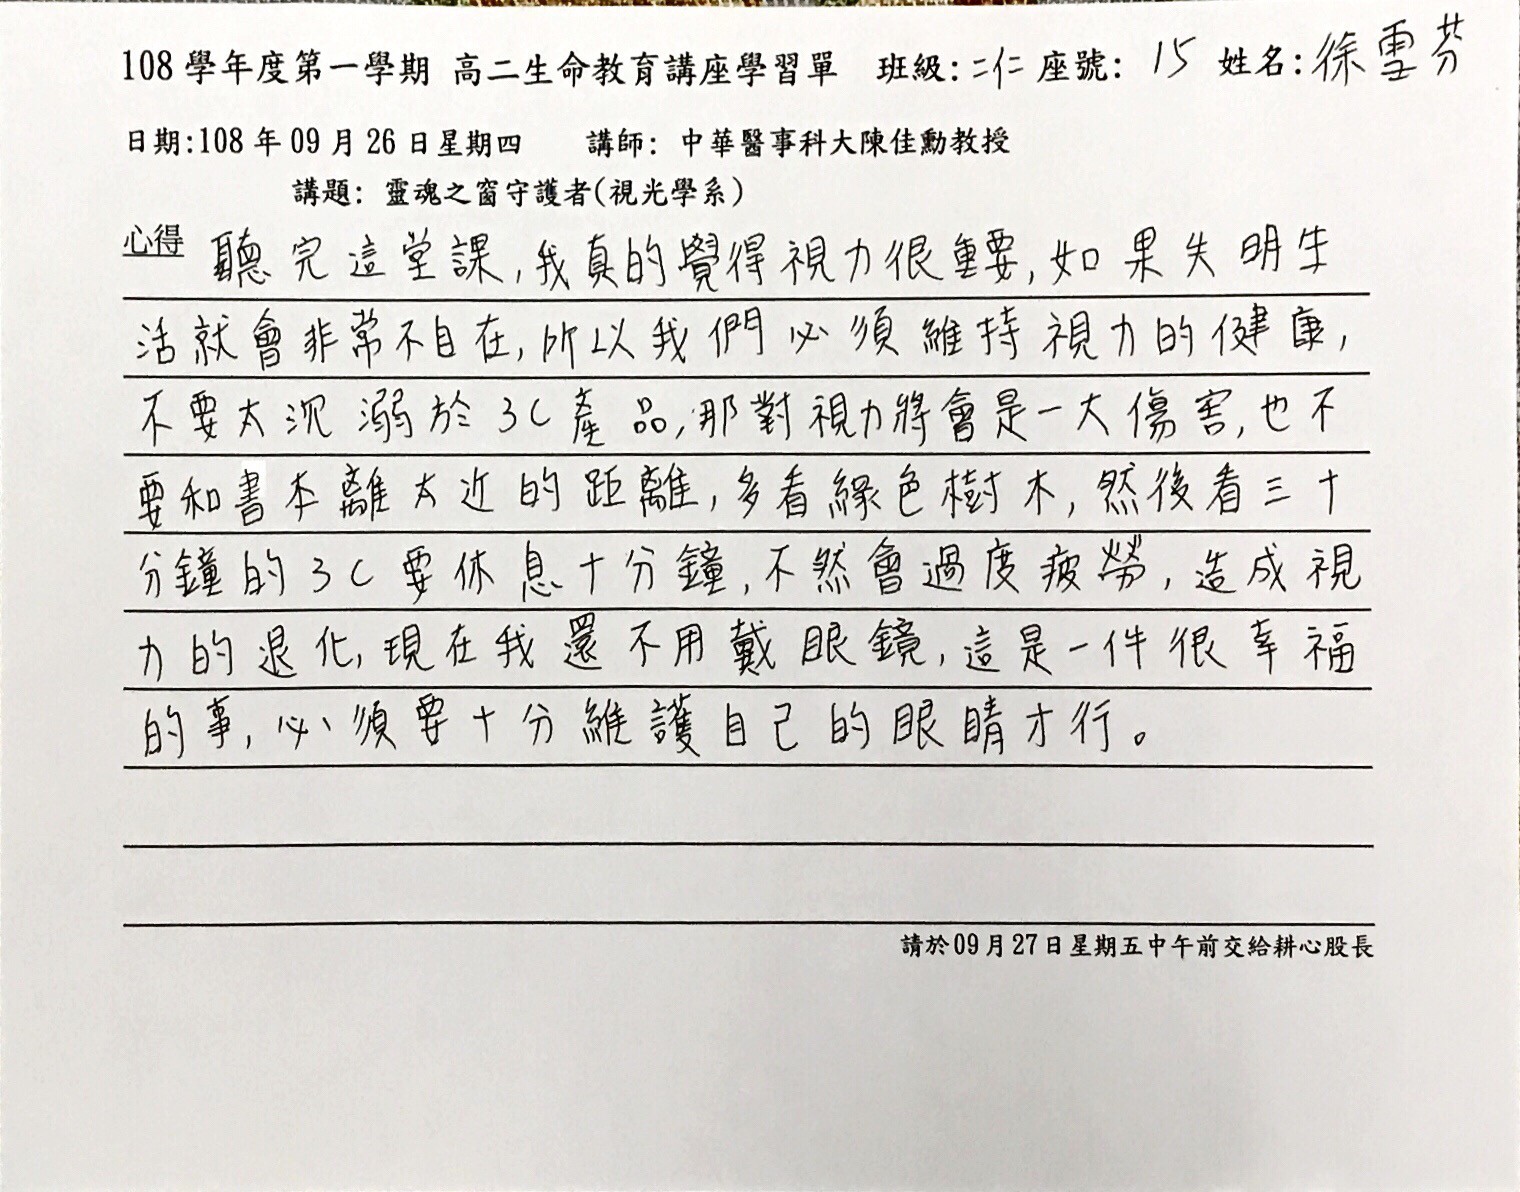 108 學年度第一學期 高二生命教育講座學習單 班級: 二仁 座號: 15 姓名: 徐雪芬
日期:108 年 09 月 26 日星期四 講師: 中華醫事科大陳佳勳教授
講題: 靈魂之窗守護者(視光學系)
心得 聽完這堂課,我真的覺得視力很重要,如果失明生
活就會非常不自在,所以我們必須維持視力的健康,
不要太沉溺於3C產品,那對視力將會是一大傷害,也不
要和書本離太近的距離,多看綠色樹木,然後看三十
分鐘的3C要休息十分鐘,不然會過度疲勞,造成視
力的退化,現在我還不用戴眼鏡,這是一件很幸福
的事,必須要十分維護自己的眼睛才行。
請於09月27日星期五中午前交給耕心股長